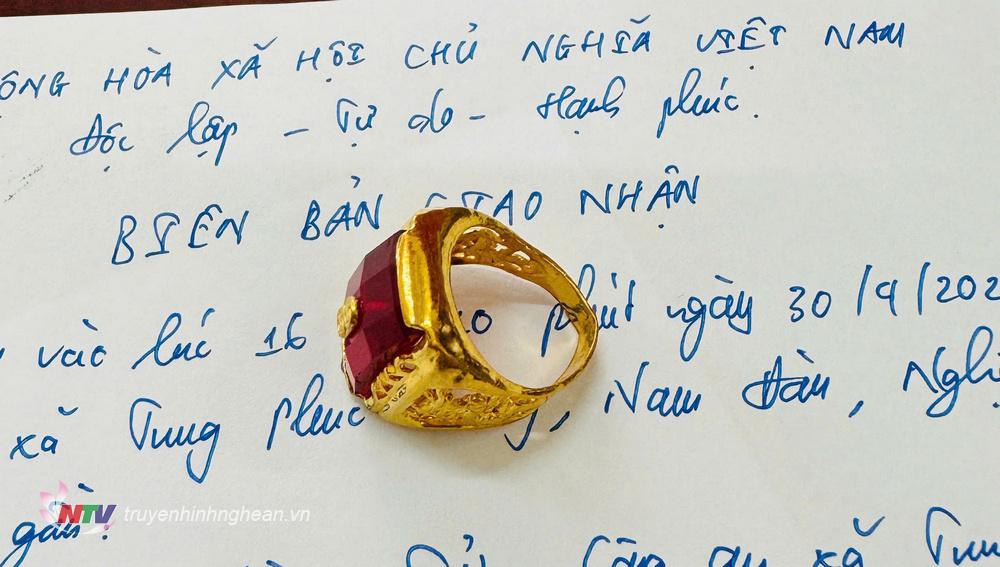 ÔNG HÒA XÃ HỘI CHỦ NGHĨA VIỆT NAM
Độc lập - Tự do - Hạnh phúc.
BIÊN BẢN GIAO NHẬN
vào lúc 16 phút ngày 30/9/202
xã Trung phúc Nam Đàn, Ngh
gồm:
xã
NTV truyenhinhnghean.vn